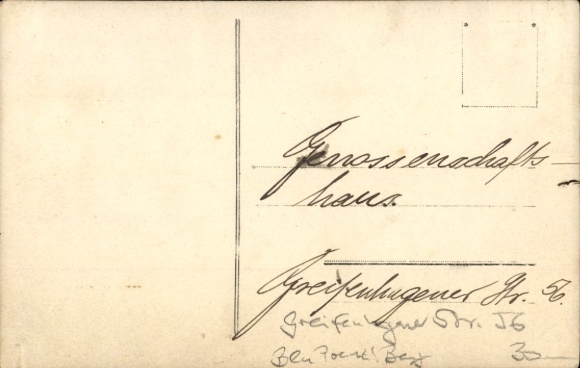 Genossenschafts-
haus.
Greifenhagener Str. 56.
Greifenhagener Str. 56
Bln